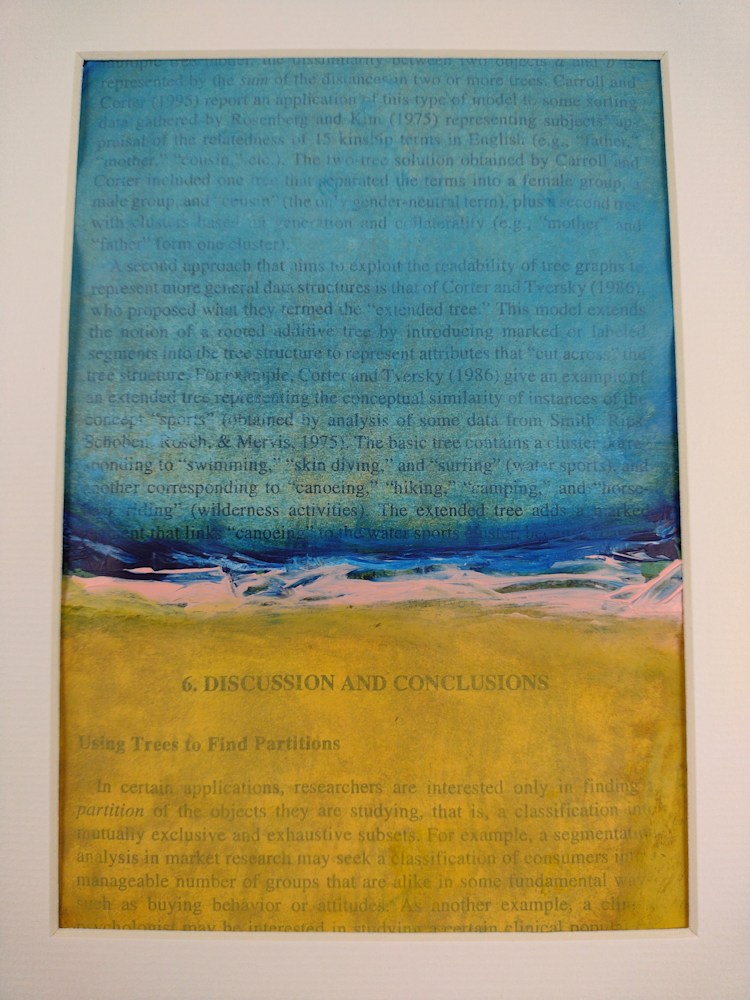 the dissimilarity between two objects a and
represented by the sum of the distances in two or more trees. Carroll and
Corter (1995) report an application of this type of model to some sorting
data gathered by Rosenberg and Kim (1975) representing subjects' ap-
praisal of the relatedness of 15 kinship terms in English (e.g., "father,"
"mother," "cousin," etc.). The two-tree solution obtained by Carroll and
Corter included one tree that separated the terms into a female group, a
male group, and "cousin" (the only gender-neutral term), plus a second tree
with clusters based on generation and collaterality (e.g., "mother" and
"father" form one cluster).
A second approach that aims to exploit the readability of tree graphs to
represent more general data structures is that of Corter and Tversky (1986),
who proposed what they termed the "extended tree." This model extends
the notion of a rooted additive tree by introducing marked or labeled
segments into the tree structure to represent attributes that "cut across" the
tree structure. For example, Corter and Tversky (1986) give an example of
an extended tree representing the conceptual similarity of instances of the
concept "sports" (obtained by analysis of some data from Smith, Rips,
Schoben, Rosch, & Mervis, 1975). The basic tree contains a cluster corre-
sponding to "swimming," "skin diving," and "surfing" (water sports), and
another corresponding to "canoeing," "hiking," "camping," and "horse-
riding" (wilderness activities). The extended tree adds a marked
that links "canoeing" to the water sports cluster,
6. DISCUSSION AND CONCLUSIONS
Using Trees to Find Partitions
In certain applications, researchers are interested only in finding
partition of the objects they are studying, that is, a classification into
mutually exclusive and exhaustive subsets. For example, a segmentation
analysis in market research may seek a classification of consumers into
manageable number of groups that are alike in some fundamental way
such as buying behavior or attitudes. As another example, a
psychologist may be interested in studying a certain clinical